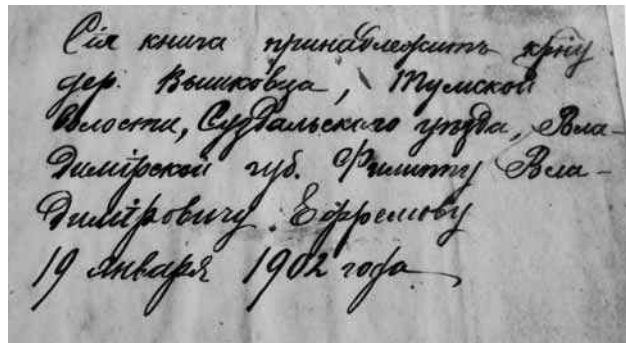 Сія книга принадлежитъ крну
дер. Вышковца, Тумской
волости, Суздальскаго уѣзда, Вла-
димірской губ. Филиппу Вла-
димировичу Ефремову
19 января 1902 года